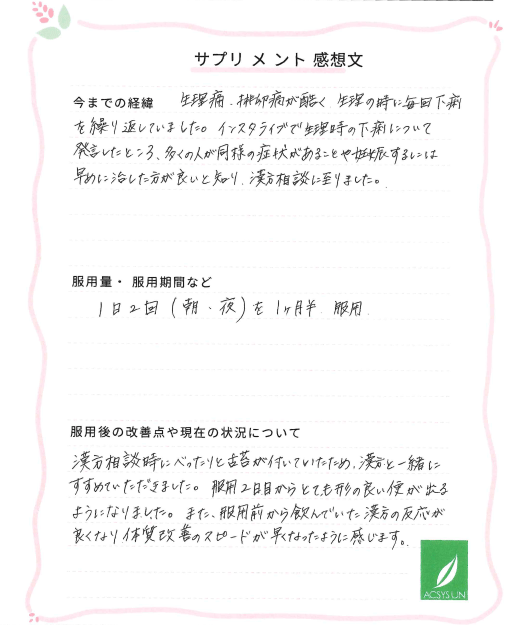 サプリメント感想文
今までの経緯　生理痛、排卵痛が酷く 生理の時に毎回下痢
を繰り返していました。インスタライブで生理時の下痢について
発言したところ、多くの人が同様の症状があることや妊娠するには
早めに治した方が良いと知り、漢方相談に至りました。
服用量・服用期間など
1日2回(朝、夜)を1ヶ月半 服用
服用後の改善点や現在の状況について
漢方相談時にべったりと舌苔が付いていたため、漢方と一緒に
すすめていただきました。服用2日目からとても形の良い便が出る
ようになりました。また、服用前から飲んでいた漢方の反応が
良くなり体質改善のスピードが早くなったように感じます。
ACSYSUN